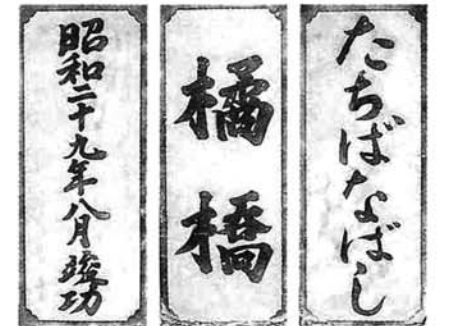 たちばなばし
橘橋
昭和二十九年八月竣功